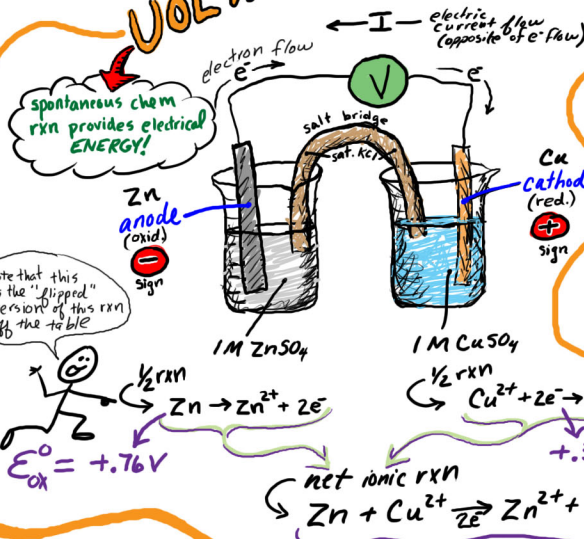 ← I — electric
current flow
(opposite of e⁻ flow)
electron flow
e⁻ →
V
e⁻
spontaneous chem
rxn provides electrical
ENERGY!
salt bridge
sat. KCl
Zn
anode
(oxid.)
−
sign
Cu
(red.)
+
sign
that this
the "flipped"
of this rxn
the table
1M ZnSO₄
1M CuSO₄
½ rxn
Zn → Zn²⁺ + 2e⁻
½ rxn
Cu²⁺ + 2e⁻ →
Ɛ°ox = +.76V
net ionic rxn
Zn + Cu²⁺ →2e⁻ Zn²⁺ +